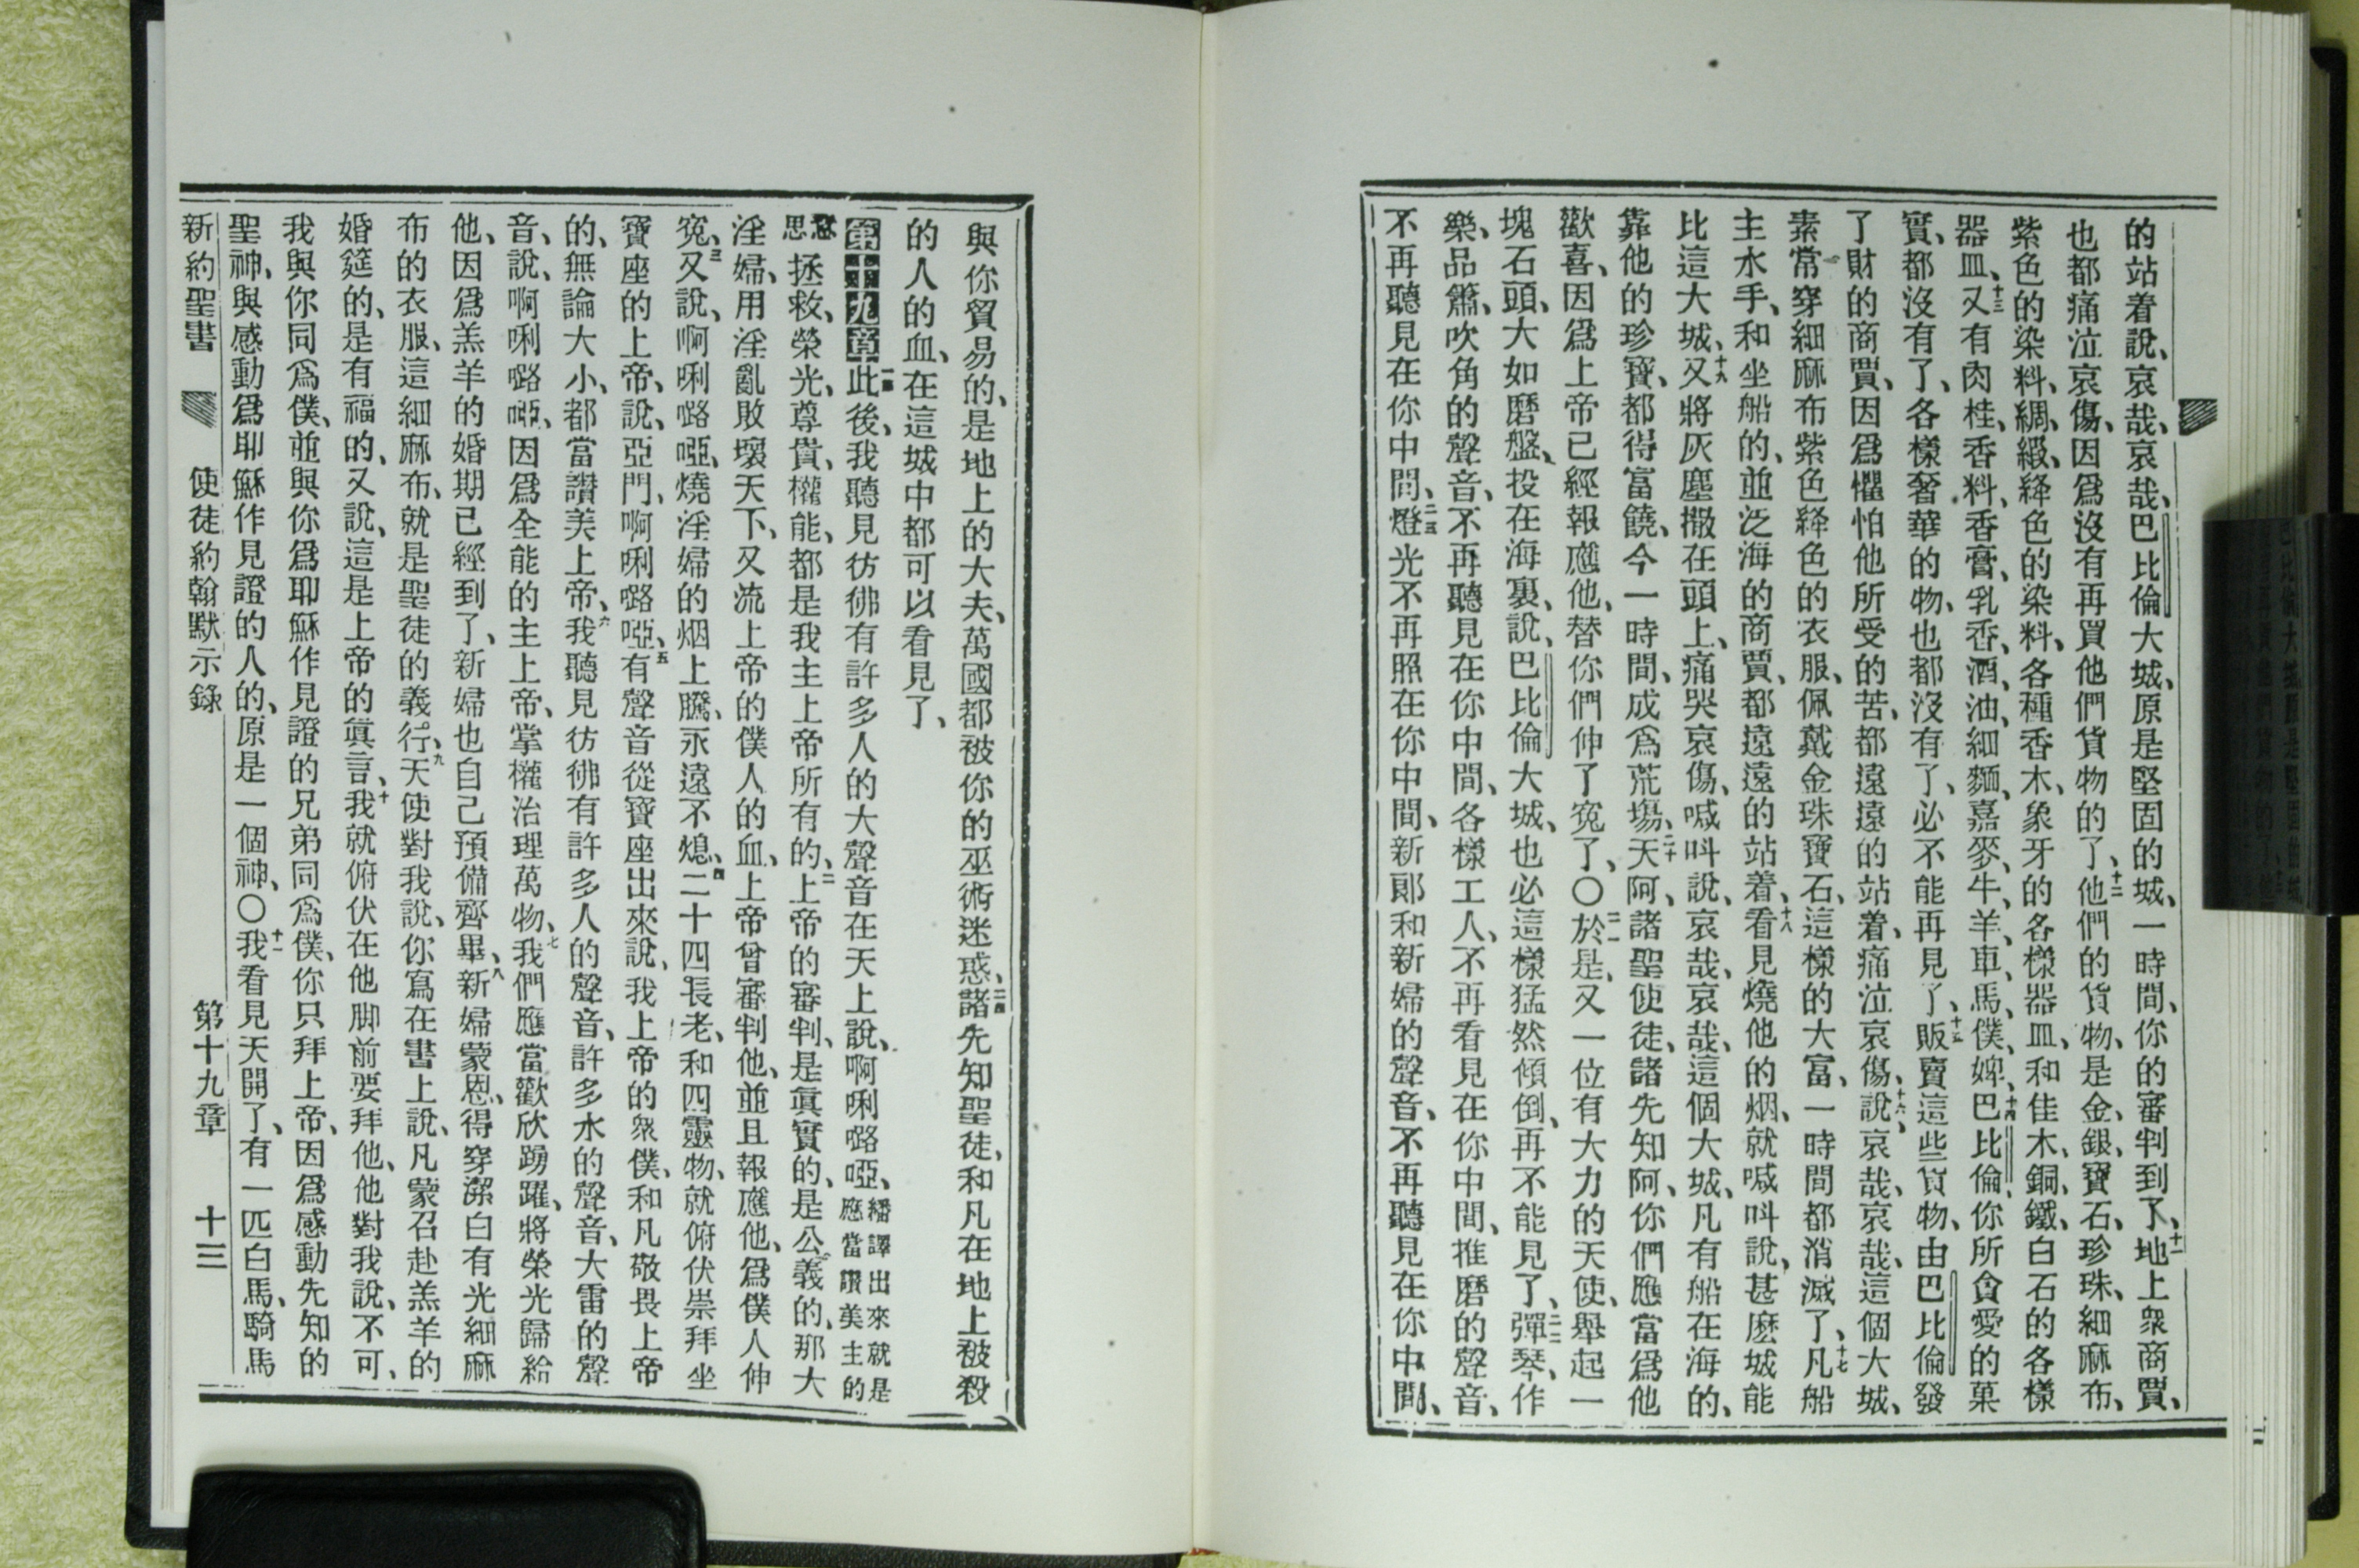 的站着說、哀哉、哀哉、巴比倫大城、原是堅固的城、一時間、你的審判到了、十一地上衆商賈、
也都痛泣哀傷、因爲沒有再買他們貨物的了、十二他們的貨物、是金、銀、寶石、珍珠、細麻布、
紫色的染料、綢、緞、絳色的染料、各種香木、象牙的各樣器皿、和佳木、銅、鐵、白石的各樣
器皿、十三又有肉桂、香料、香膏、乳香、酒、油、細麵、嘉麥、牛、羊、車、馬、僕、婢、十四巴比倫、你所貪愛的菓
實、都沒有了、各樣奢華的物、也都沒有了、必不能再見了、十五販賣這些貨物、由巴比倫發
了財的商賈、因爲懼怕他所受的苦、都遠遠的站着、痛泣哀傷、十六說、哀哉、哀哉、這個大城、
素常穿細麻布紫色絳色的衣服、佩戴金珠寶石、這樣的大富、一時間都消滅了、十七凡船
主水手、和坐船的、並泛海的商賈、都遠遠的站着、十八看見燒他的烟、就喊呌說、甚麽城能
比這大城、十九又將灰塵撒在頭上、痛哭哀傷、喊呌說、哀哉、哀哉、這個大城、凡有船在海的、
靠他的珍寶、都得富饒、今一時間、成爲荒塲、二十天阿、諸聖使徒、諸先知阿、你們應當爲他
歡喜、因爲上帝已經報應他、替你們伸了寃了、〇二一於是、又一位有大力的天使、舉起一
塊石頭、大如磨盤、投在海裏、說、巴比倫大城、也必這樣猛然傾倒、再不能見了、二二彈琴、作
樂、品簫、吹角的聲音、不再聽見在你中間、各樣工人、不再看見在你中間、推磨的聲音、
不再聽見在你中間、二三燈光不再照在你中間、新郞和新婦的聲音、不再聽見在你中間、
與你貿易的、是地上的大夫、萬國都被你的巫術迷惑、二四諸先知聖徒、和凡在地上被殺
的人的血、在這城中都可以看見了、
第十九章一節此後、我聽見彷彿有許多人的大聲音在天上說、啊唎嚕啞、繙譯出來就是應當讚美主的
意思拯救、榮光、尊貴、權能、都是我主上帝所有的、二上帝的審判、是眞實的、是公義的、那大
淫婦、用淫亂敗壞天下、又流上帝的僕人的血、上帝曾審判他、並且報應他、爲僕人伸
寃、三又說、啊唎嚕啞、燒淫婦的烟上騰、永遠不熄、四二十四長老、和四靈物、就俯伏崇拜坐
寶座的上帝、說、亞門、啊唎嚕啞、五有聲音從寶座出來說、我上帝的衆僕、和凡敬畏上帝
的、無論大小、都當讚美上帝、六我聽見彷彿有許多人的聲音、許多水的聲音、大雷的聲
音、說、啊唎嚕啞、因爲全能的主上帝、掌權治理萬物、七我們應當歡欣踴躍、將榮光歸給
他、因爲羔羊的婚期已經到了、新婦也自己預備齊畢、八新婦蒙恩、得穿潔白有光細麻
布的衣服、這細麻布、就是聖徒的義行、九天使對我說、你寫在書上說、凡蒙召赴羔羊的
婚筵的、是有福的、又說、這是上帝的眞言、十我就俯伏在他脚前要拜他、他對我說、不可、
我與你同爲僕、並與你爲耶穌作見證的兄弟同爲僕、你只拜上帝、因爲感動先知的
聖神、與感動爲耶穌作見證的人的、原是一個神、〇十一我看見天開了、有一匹白馬、騎馬
新約聖書 使徒約翰默示錄 第十九章 十三